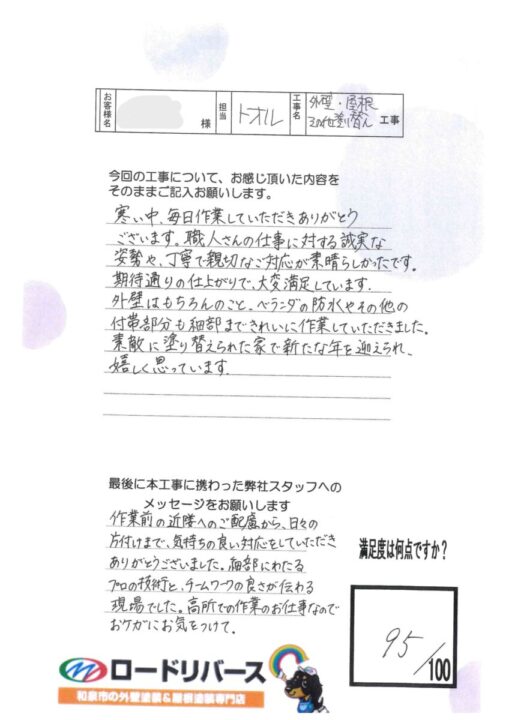 お客様名 様 担当 トオル 工事名 外壁・屋根
その他塗替え 工事
今回の工事について、お感じ頂いた内容を
そのままご記入お願いします。
寒い中、毎日作業していただきありがとう
ございます。職人さんの仕事に対する誠実な
姿勢や、丁寧で親切なご対応が素晴らしかったです。
期待通りの仕上がりで、大変満足しています。
外壁はもちろんのこと、ベランダの防水やその他の
付帯部分も細部まできれいに作業していただきました。
素敵に塗り替えられた家で新たな年を迎えられ、
嬉しく思っています。
最後に本工事に携わった弊社スタッフへの
メッセージをお願いします
作業前の近隣へのご配慮から、日々の
片付けまで、気持ちの良い対応をしていただき
ありがとうございました。細部にわたる
プロの技術と、チームワークの良さが伝わる
現場でした。高所での作業のお仕事なので
おケガにお気をつけて。
満足度は何点ですか?
95/100
ロードリバース
和泉市の外壁塗装&屋根塗装専門店